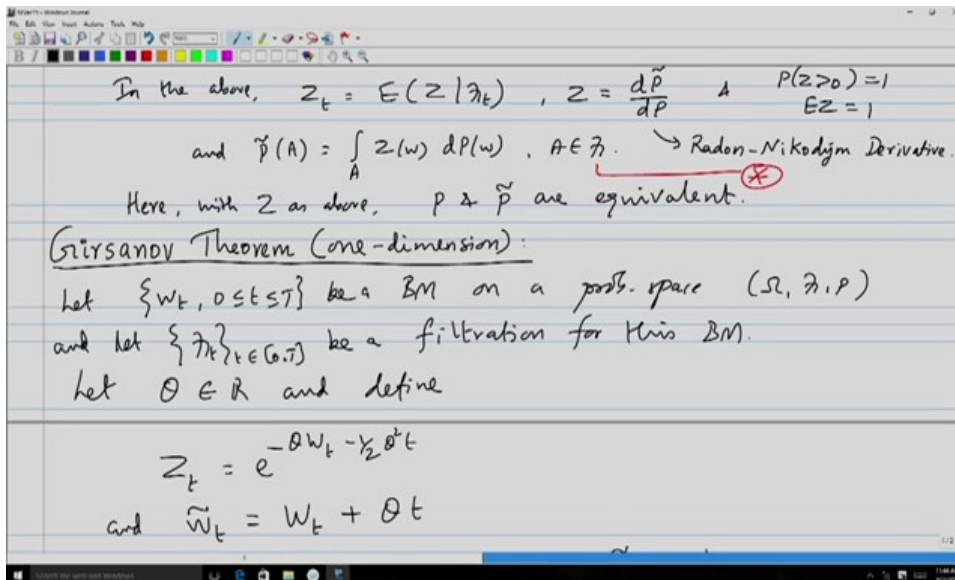 File Edit View Insert Actions Tools Help
B I
In the above, Z_t = E(Z|ℱ_t), Z = dP̃/dP & P(Z>0)=1
EZ=1
and P̃(A) = ∫_A Z(ω) dP(ω), A∈ℱ. → Radon-Nikodým Derivative.
*
Here, with Z as above, P & P̃ are equivalent.
Girsanov Theorem (one-dimension):
Let {W_t, 0≤t≤T} be a BM on a prob. space (Ω, ℱ, P)
and let {ℱ_t}_{t∈[0,T]} be a filtration for this BM.
Let θ ∈ ℝ and define
Z_t = e^{-θW_t - ½θ²t}
and W̃_t = W_t + θt
1/2